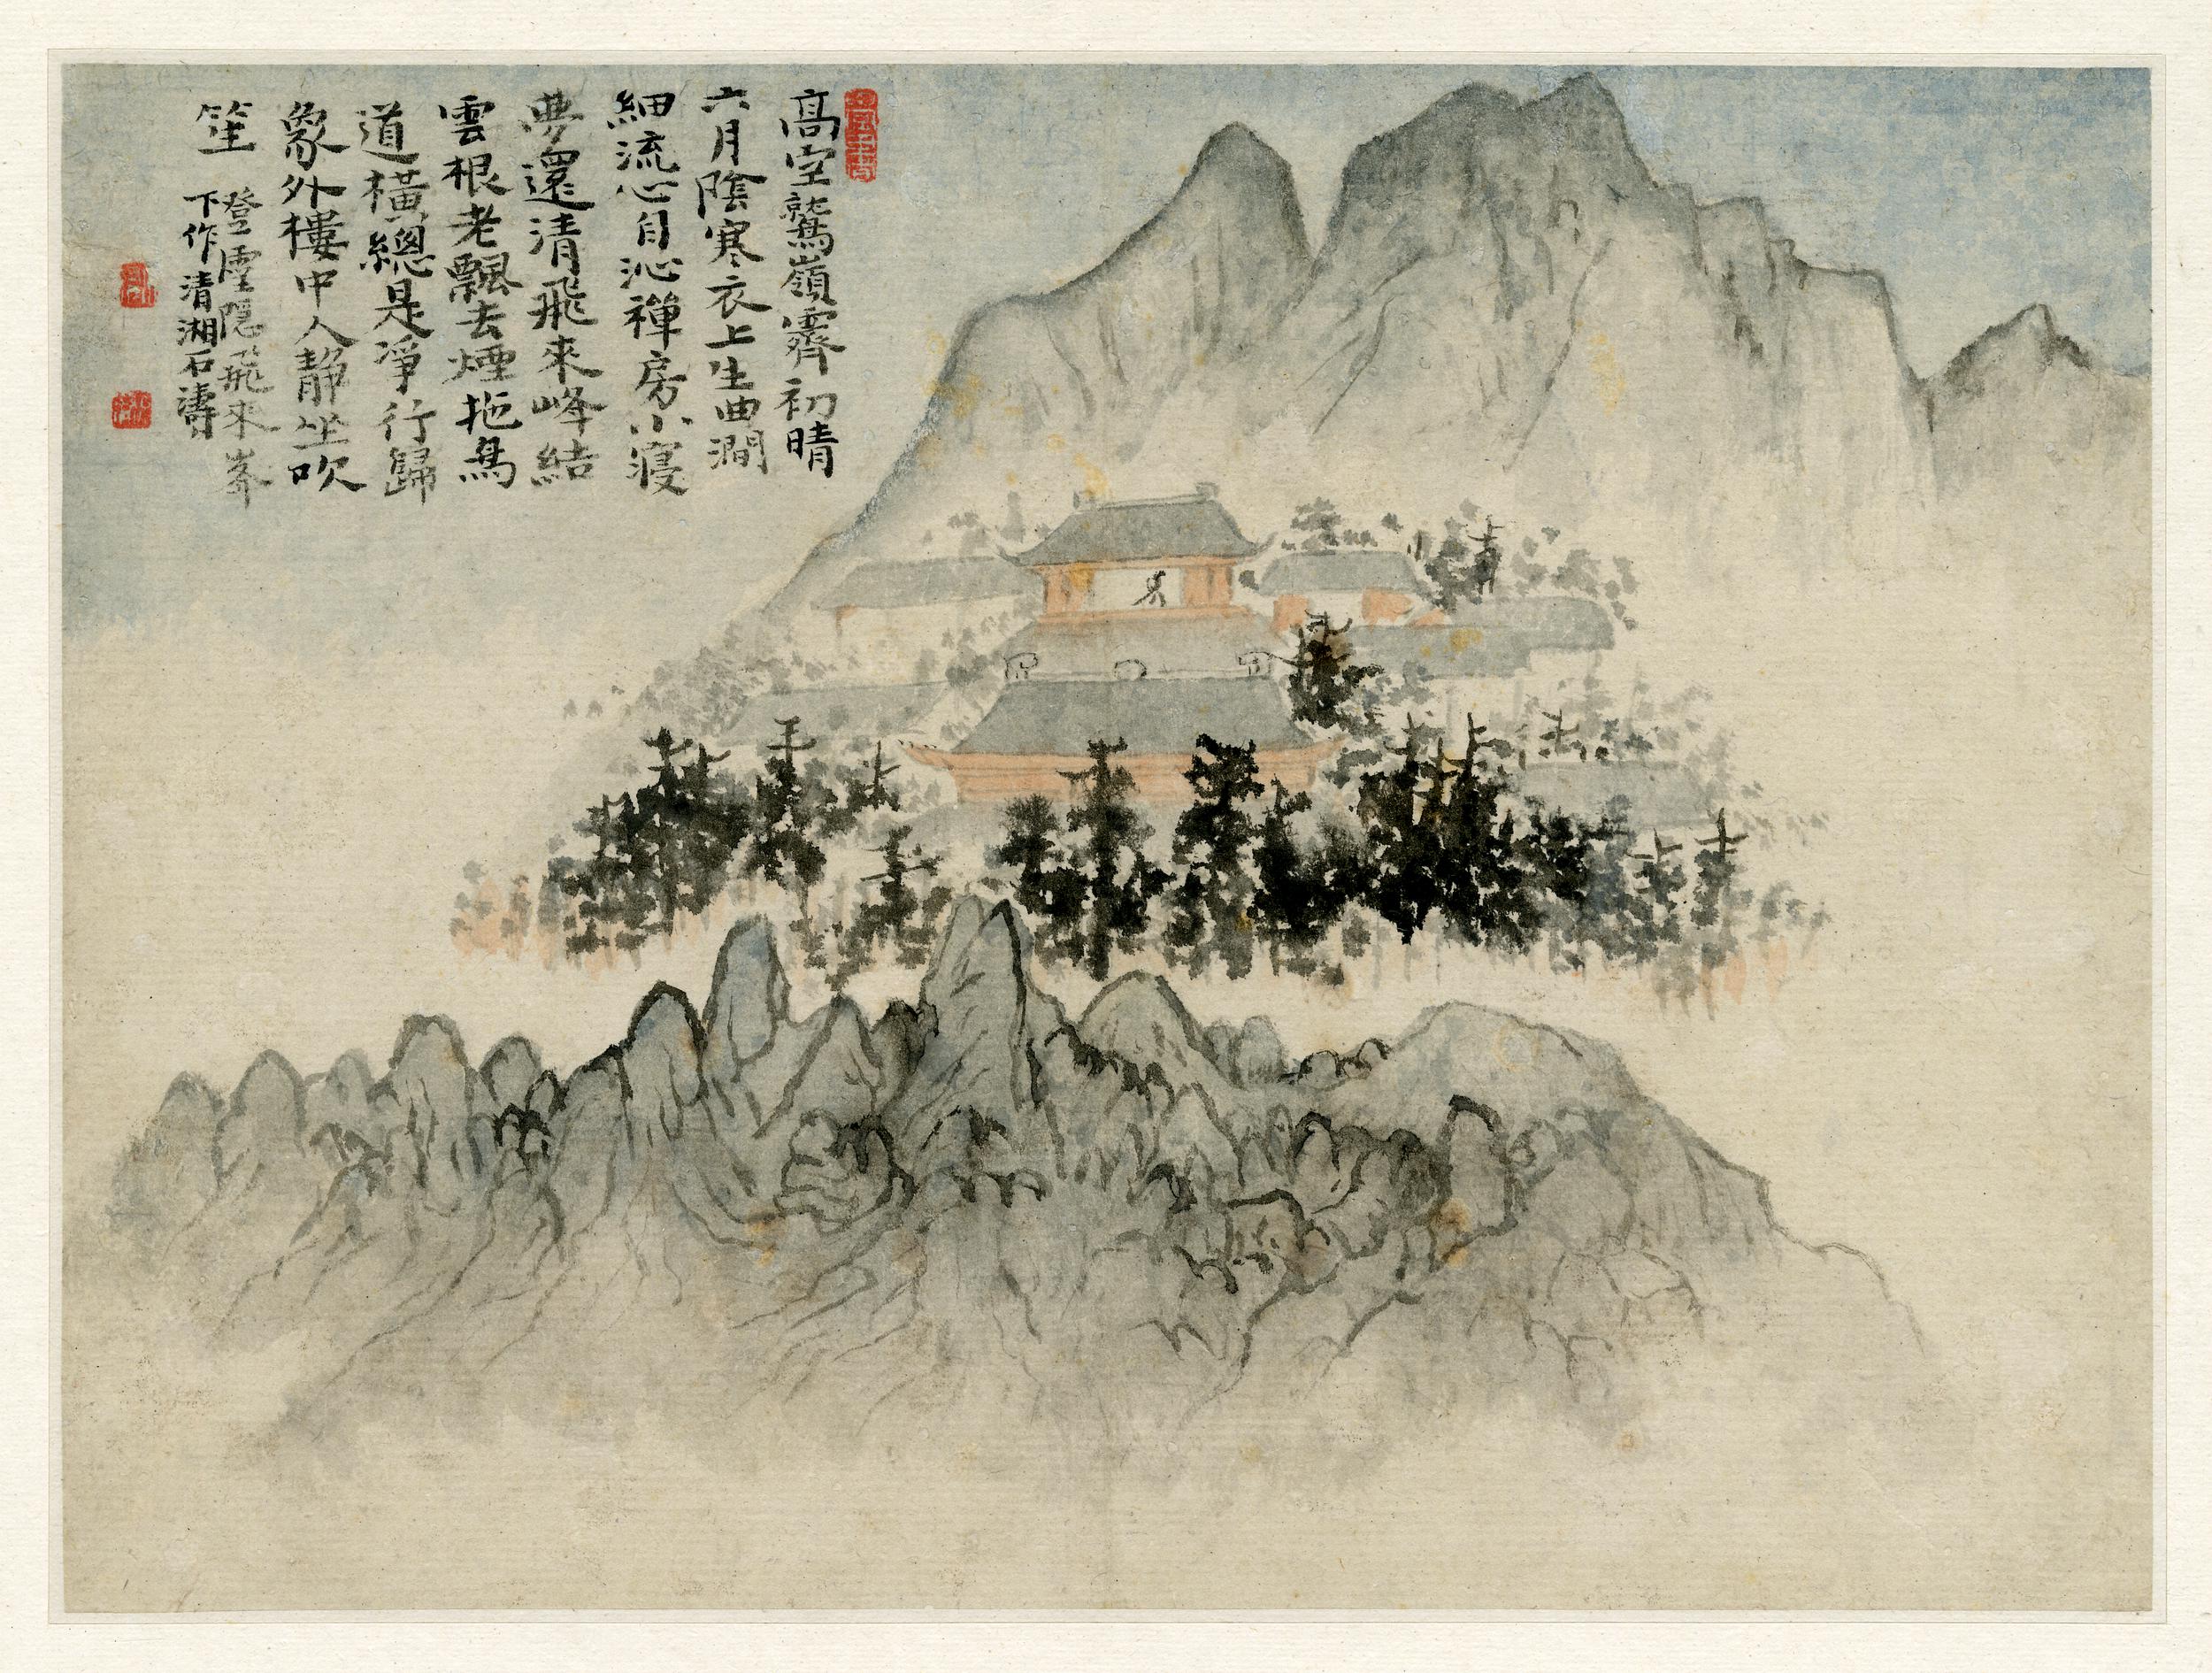 高空鷲嶺霽初晴
六月陰寒衣上生曲澗
細流心自沁禪房小寝
夢還清飛來峰結
雲根老飄去煙拖鳥
道橫總是淨行歸
象外樓中人靜坐吹
笙
登靈隱飛來峯
下作清湘石濤